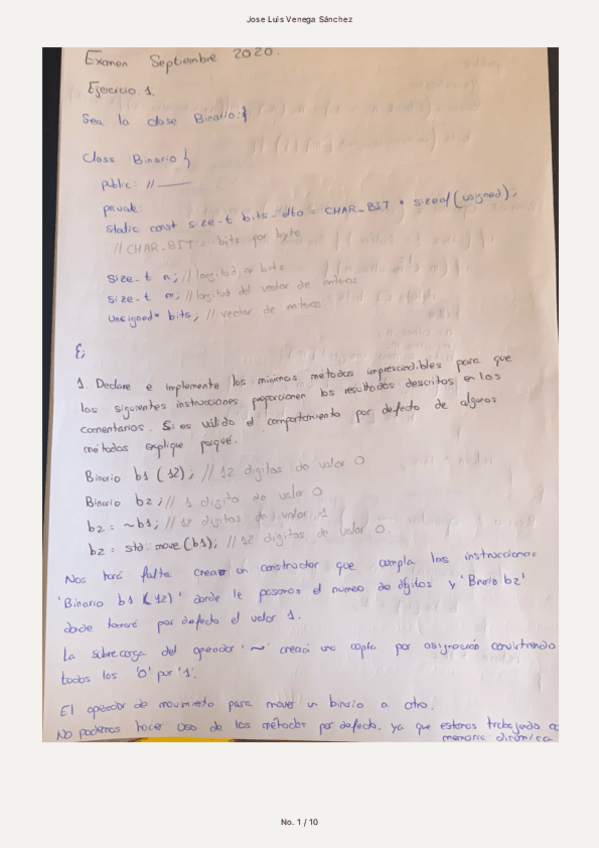 Jose Luis Venega Sánchez
Examen Septiembre 2020.
Ejercicio 1.
Sea la clase Binario:{
Class Binario }
public: // ——
private:
static const size_t bits_dto = CHAR_BIT * sizeof(unsigned);
// CHAR_BIT = bits por byte
size_t n; // longitud en bits
size_t m; // longitud del vector de enteros
unsigned* bits; // vector de enteros
};
1. Declare e implemente los mínimos métodos imprescindibles para que
las siguientes instrucciones proporcionen los resultados descritos en los
comentarios. Si es válido el comportamiento por defecto de algunos
métodos explique porqué.
Binario b1 (12); // 12 digitos de valor 0
Binario b2; // 1 digito de valor 0
b2 = ~b1; // 12 digitos de valor 1
b2 = std::move(b1); // 12 digitos de valor 0.
Nos hará falta crear un constructor que cumpla las instrucciones
'Binario b1 (12)' donde le pasamos el numeo de dígitos y 'Bnario b2'
donde tomará por defecto el valor 1.
La sobrecarga del operador '~' creará una copia por asignación convirtiendo
todos los '0' por '1'.
El operador de movimiento para mover un binario a otro.
No podemos hacer uso de los métodos por defecto, ya que estamos trabajando
memoria dinámica
No. 1 / 10